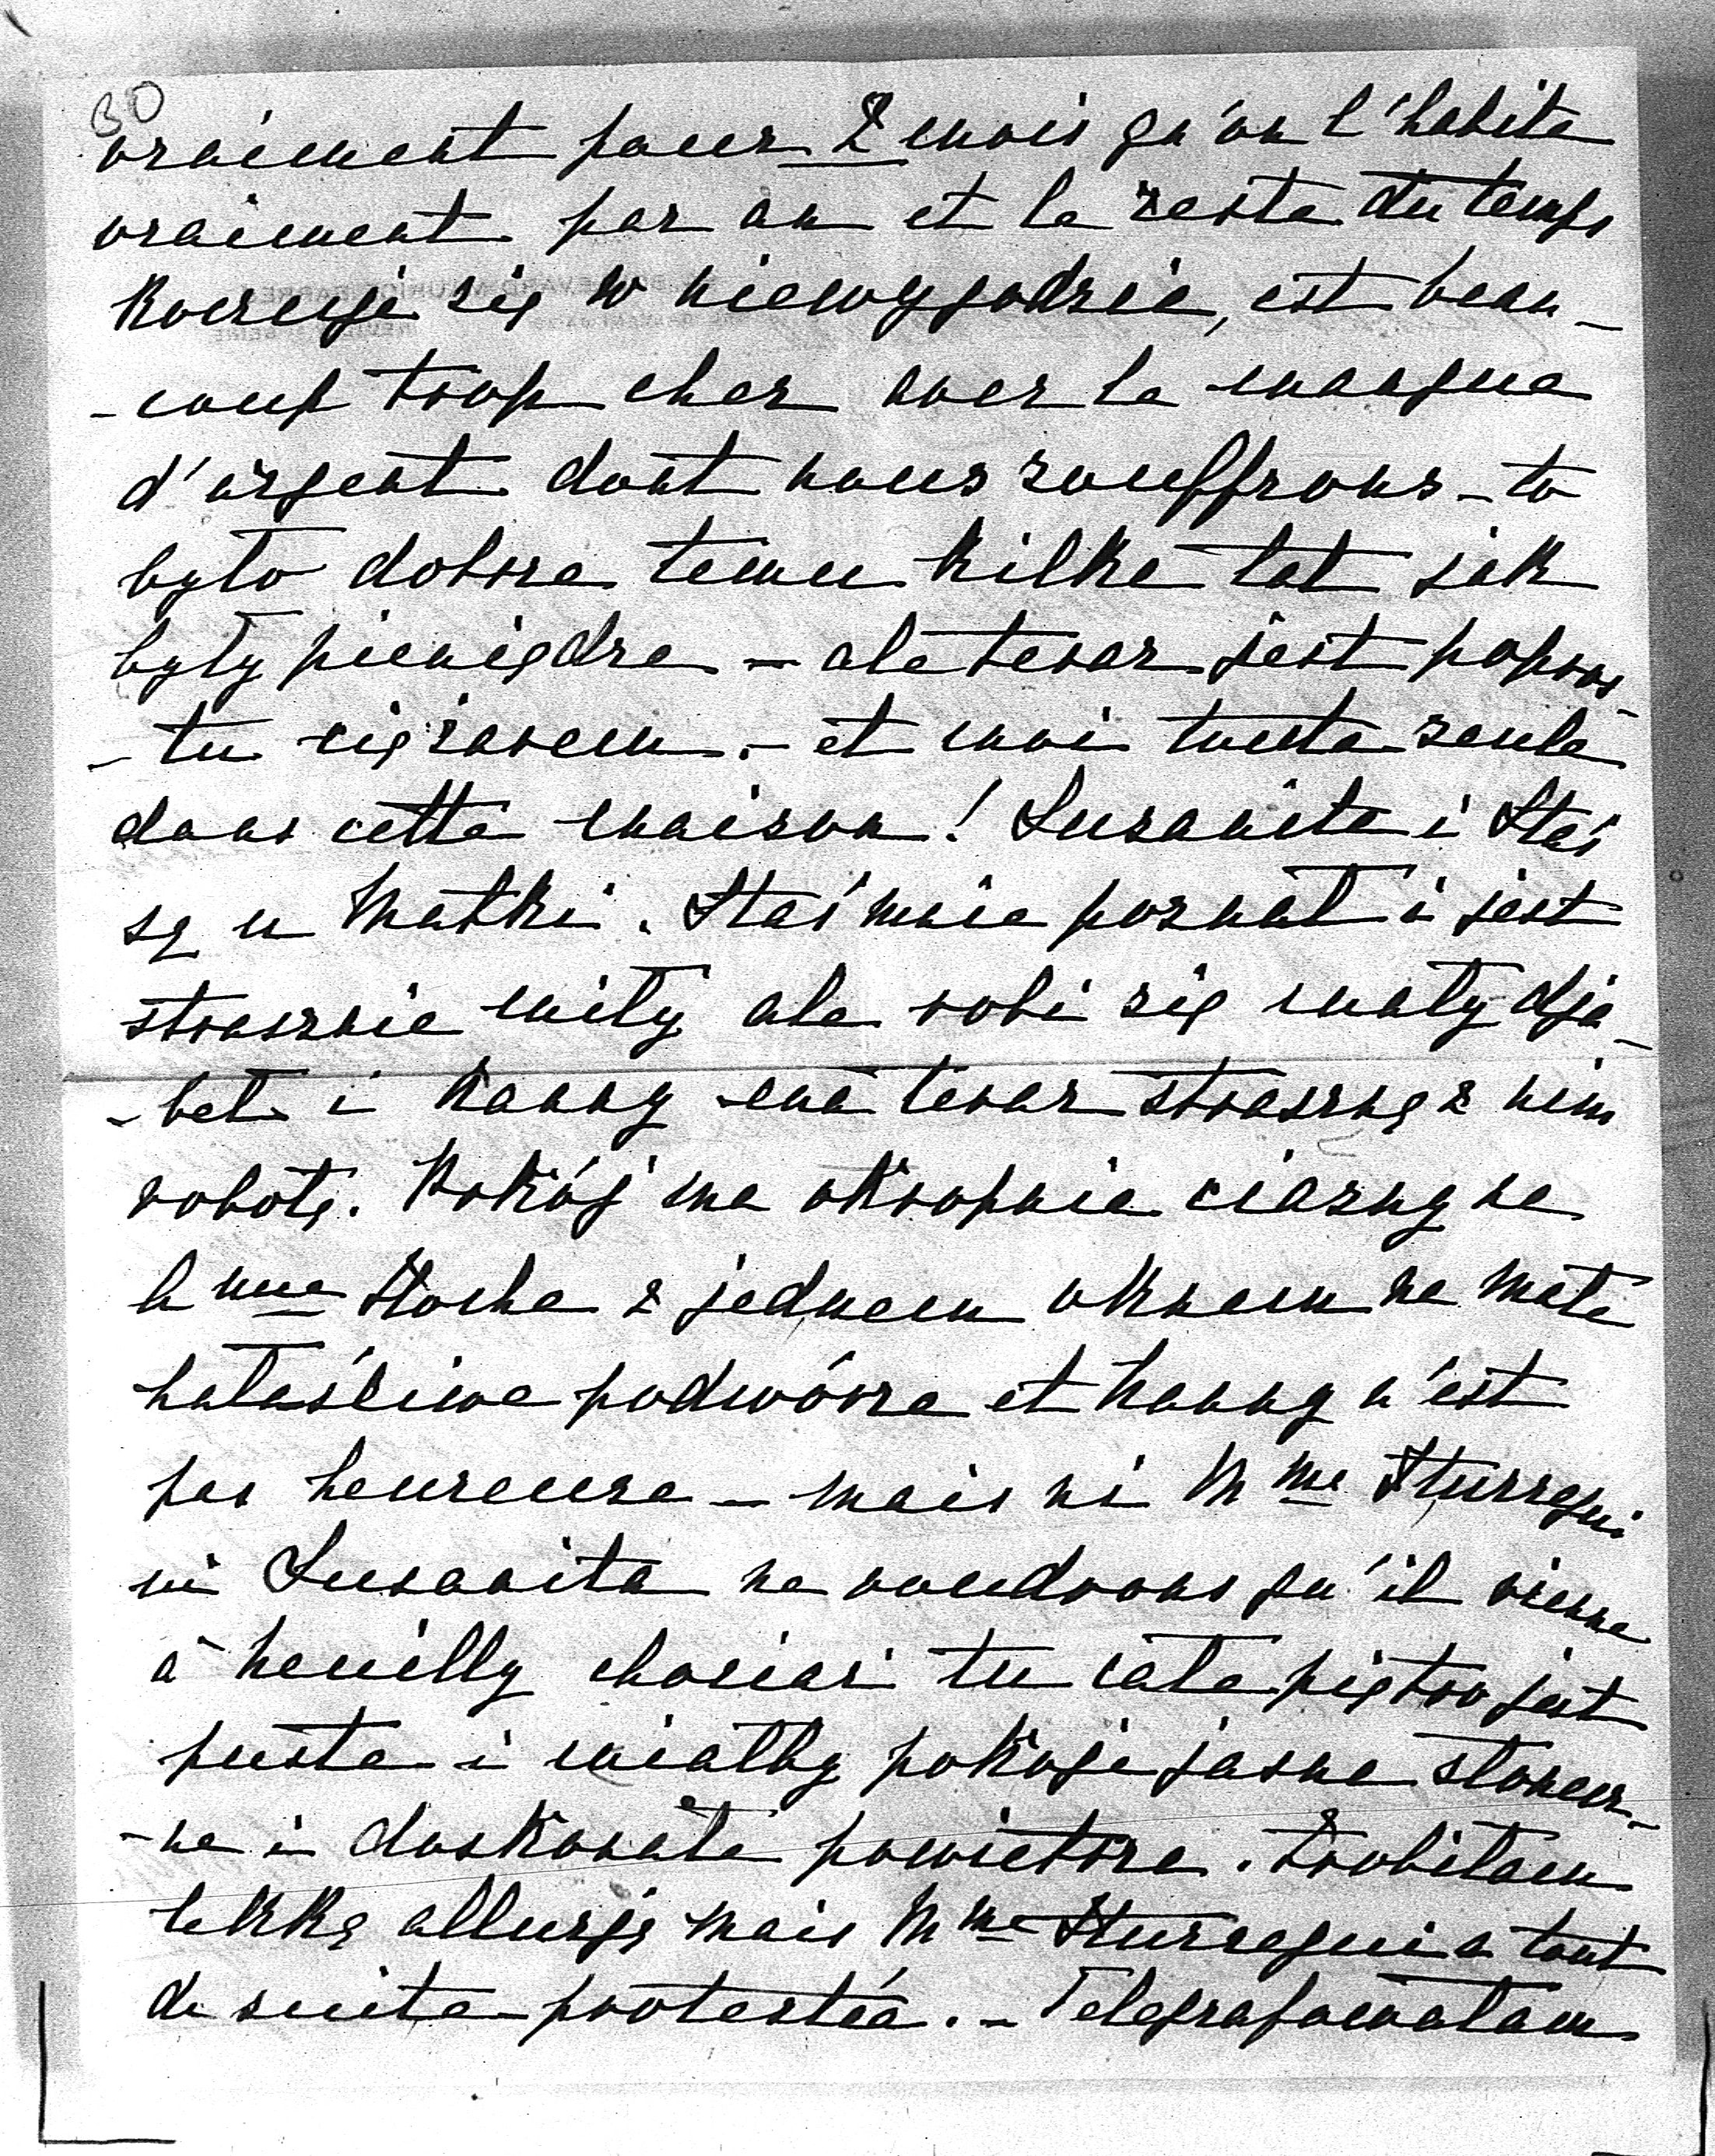 30
vraiment pour 2 mois qu'on l'habite
vraiment par an et le reste du temps
się w niewygodzie, est beau-
-coup trop cher avec le manque
d'argent dont nous souffrons - to
było dobre temu kilka lat jak
były pieniędze - ale teraz jest popros-
-tu ciężarem. - et moi toute seule
dans cette maison! Suzanita i Staś
są u Matki. Staś mnie poznał i jest
strasznie miły ale robi się mały dja-
-beł i Nanny ma teraz straszną z nim
robotę. Pokój ma okropnie ciasny na
me Roche z jednem oknem na małe
hałaśliwe podwórze et Nanny n'est
pas heureuse - mais ni Mme Iturregui
ni Suzanita ne voudrons qu'il vienne
à Neuilly chociaż tu całe piętro jest
puste i miałby pokoje jasne słonecz-
-ne i doskonałe powietrze. Zrobiłam
lekką alluzję mais Mme Iturregui a tout
de suite protestée. - Telegrafowałam